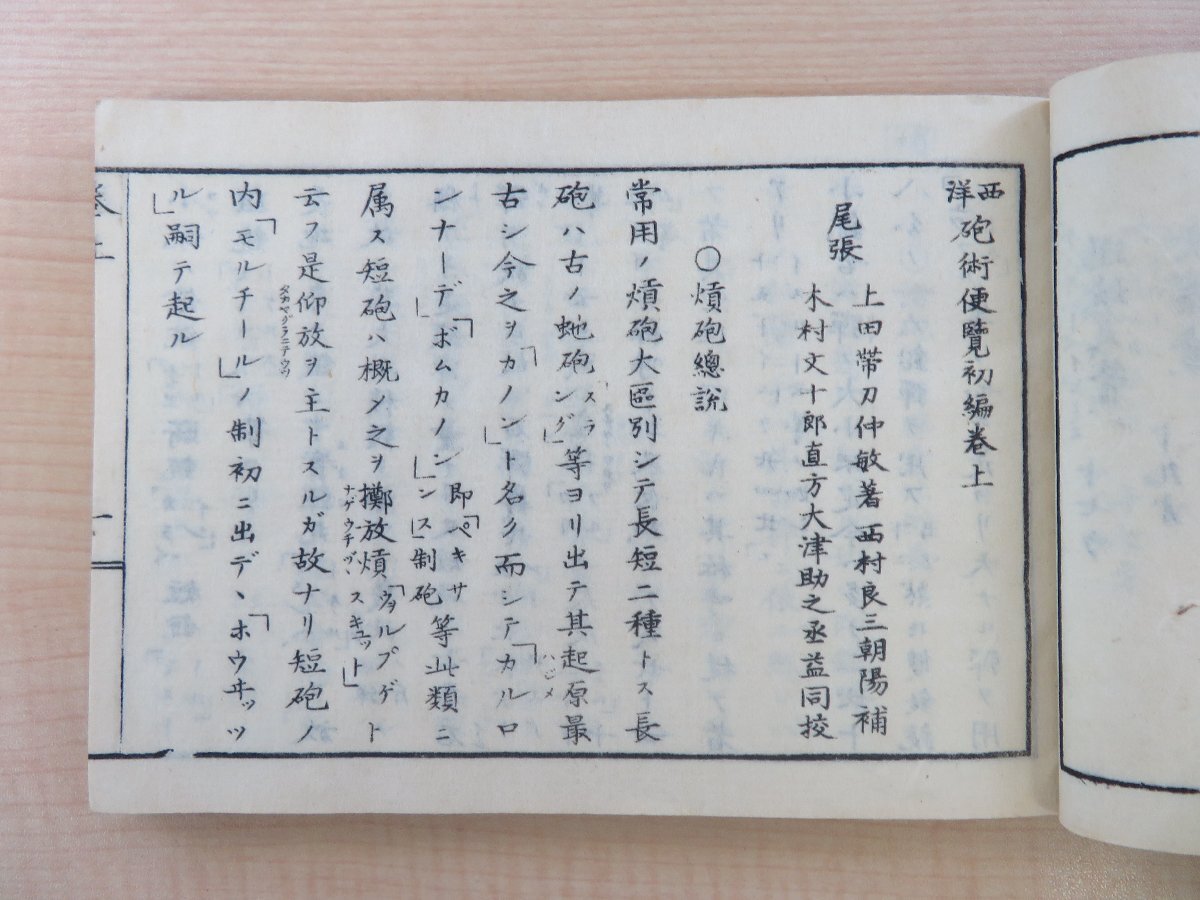 西洋砲術便覽初編巻上
尾張
上田帶刀仲敏著 西村良三朝陽補
木村文十郎直方大津助之丞益同校
〇熕砲總説
常用ノ熕砲大區別シテ長短二種トス長
砲ハ古ノ虵砲「スランガ」等ヨリ出テ其起原最
ハジメ
古シ今之ヲ「カノン」ト名ク而シテ「カルロ
ンナーデ」「ボムカノン」即「ペキサンス」制砲等此類ニ
属ス短砲ハ概シテ之ヲ擲放熕「ウヲルプゲスキュット」ト
ナゲウチヅヽ
云フ是仰放ヲ主トスルガ故ナリ短砲ノ
内「モルチール」ノ制初ニ出デヽ「ホウヰッツ
ル」嗣テ起ル
巻上